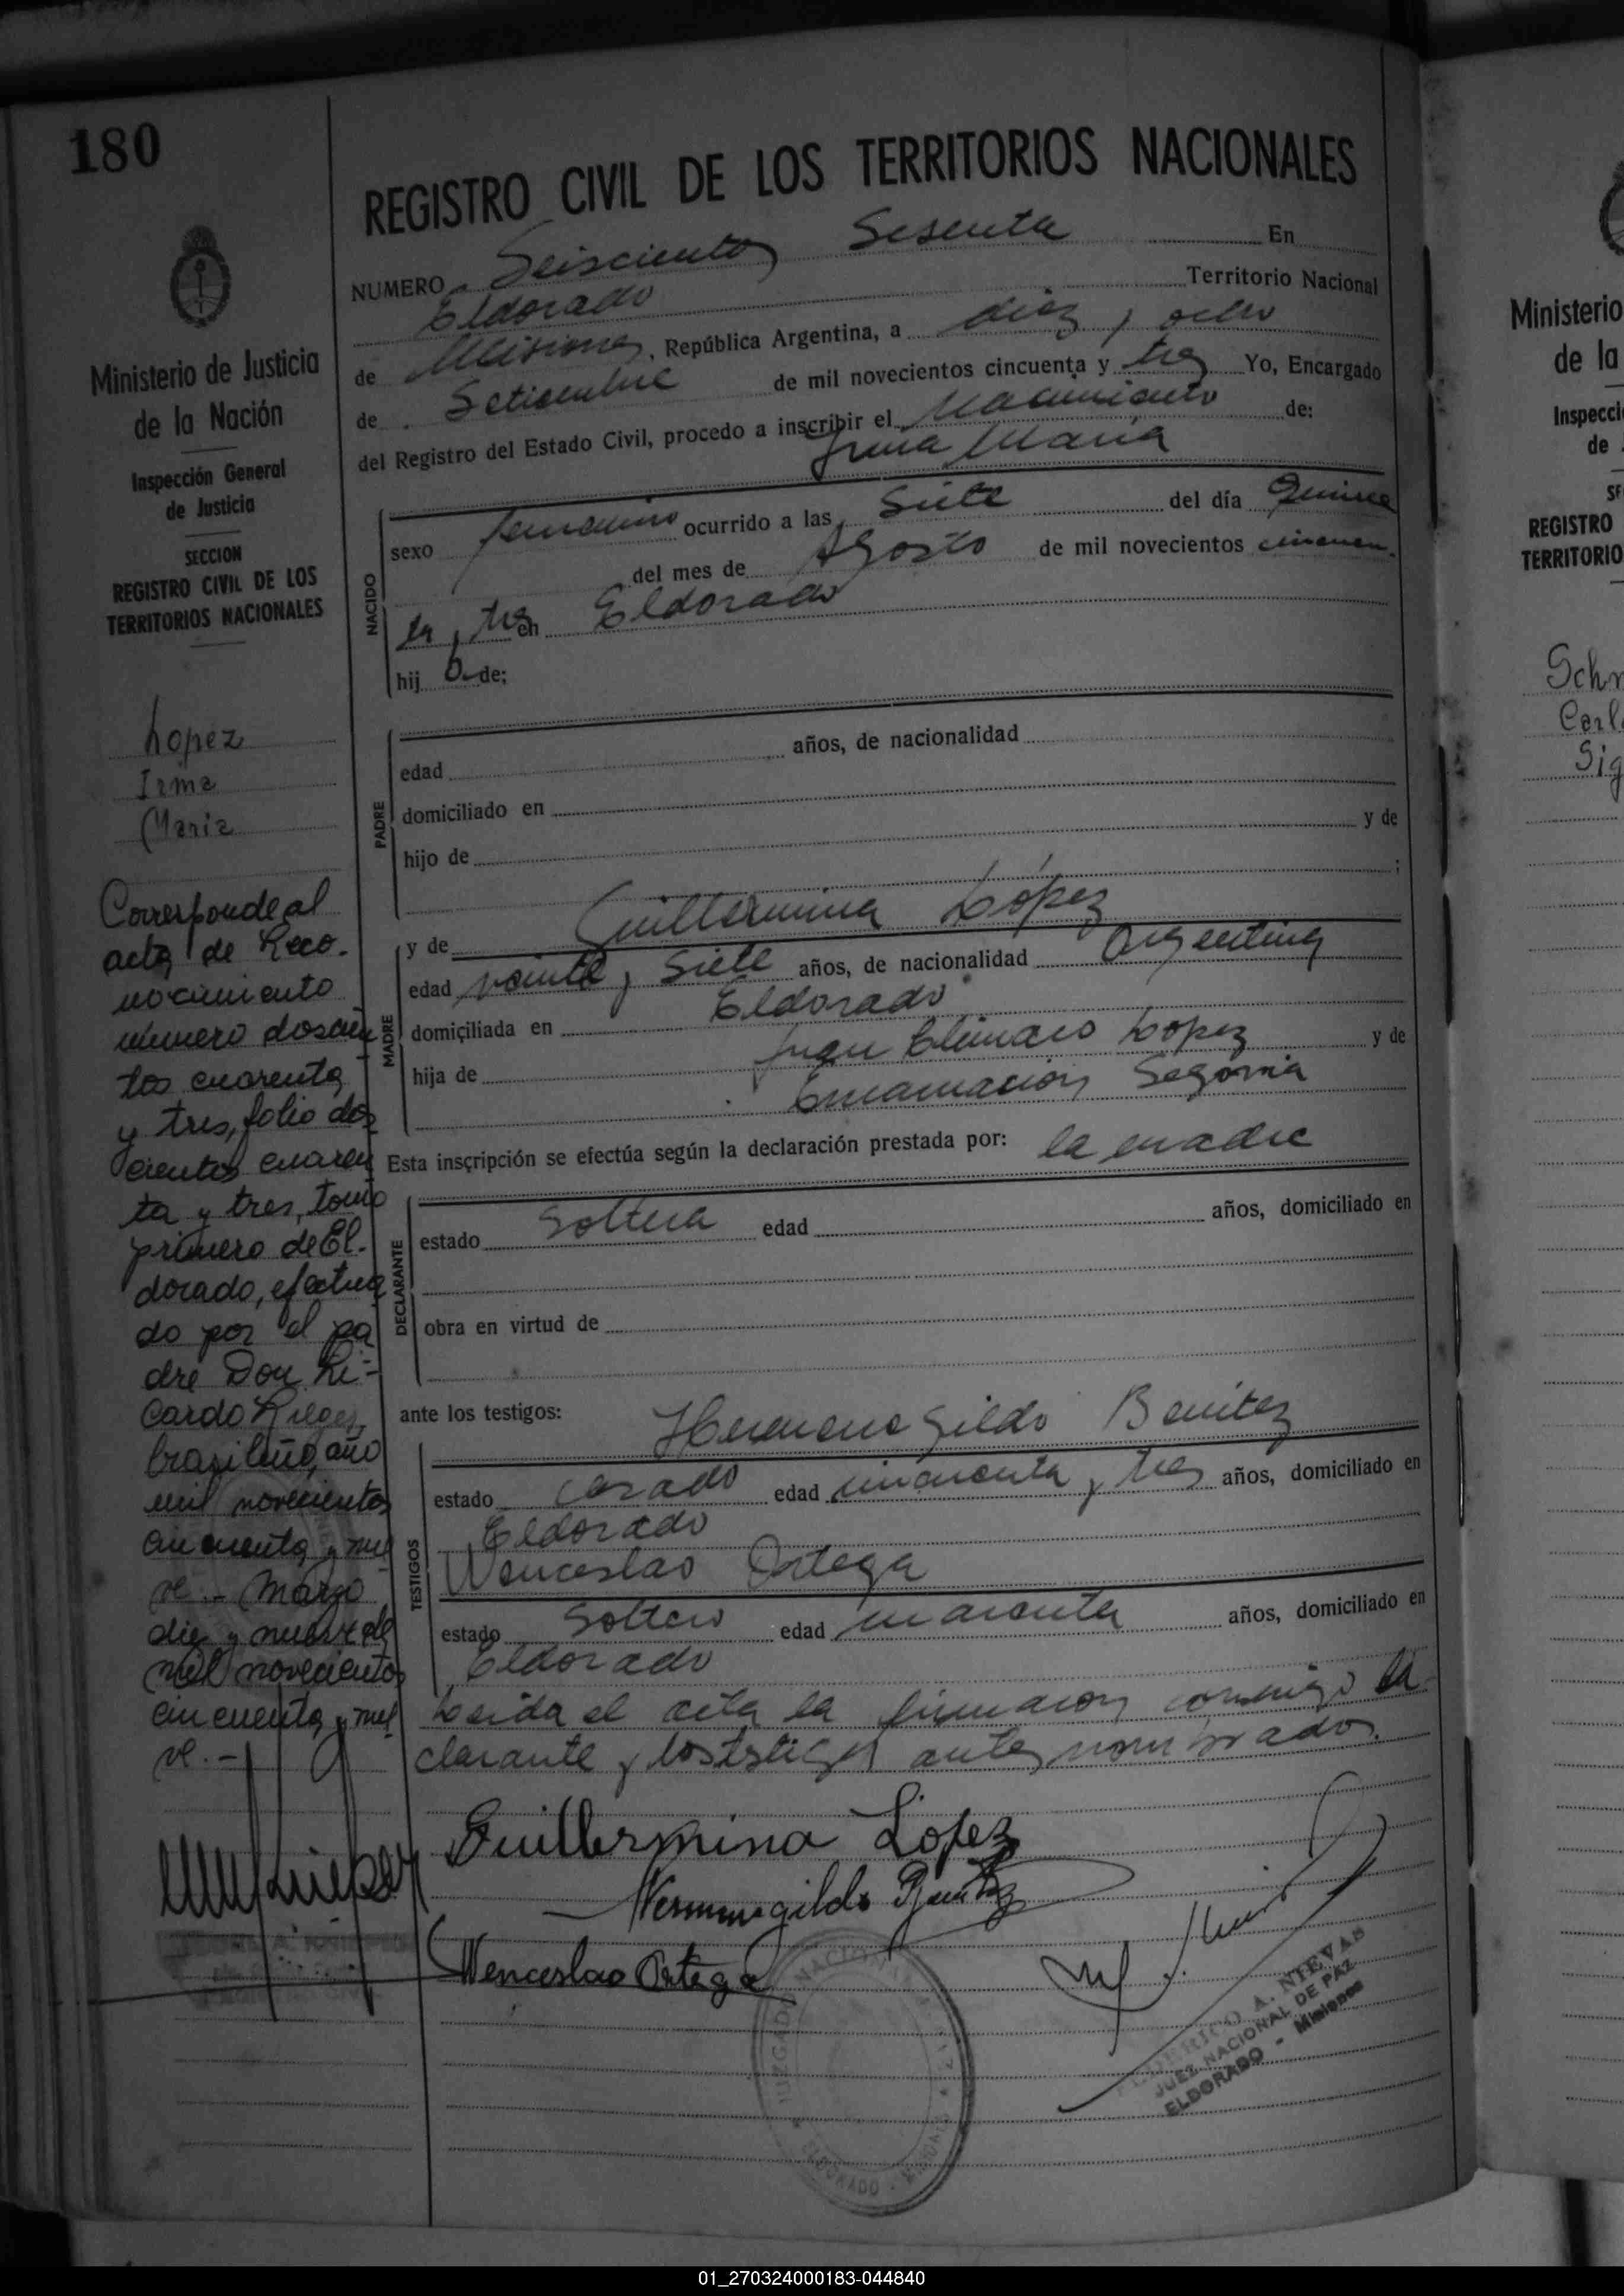 180
REGISTRO CIVIL DE LOS TERRITORIOS NACIONALES
NUMERO Seiscientos Sesenta En
Eldorado Territorio Nacional
de Misiones, República Argentina, a diez y ocho
de Setiembre de mil novecientos cincuenta y tres Yo, Encargado
del Registro del Estado Civil, procedo a inscribir el Nacimiento de:
Irma María
NACIDO
sexo femenino ocurrido a las siete del día Quince
del mes de Agosto de mil novecientos cincuen-
ta y tres en Eldorado
hij a de;
PADRE
edad años, de nacionalidad
domiciliado en
hijo de y de
;
MADRE
y de Guillermina López
edad veinte y siete años, de nacionalidad Argentina
domiciliada en Eldorado
hija de Juan Climaco Lopez y de
Encarnación Segovia
Esta inscripción se efectúa según la declaración prestada por: la madre
DECLARANTE
estado Soltera edad años, domiciliado en
obra en virtud de
ante los testigos: Hermenegildo Benítez
TESTIGOS
estado casado edad cincuenta y tres años, domiciliado en
Eldorado
Wenceslao Ortega
estado Soltero edad cuarenta años, domiciliado en
Eldorado
Leida el acta la firmaron conmigo la
clarante y los testigos antes nombrados.
Guillermina Lopez
Hermenegildo Benitez
Wenceslao Ortega
FEDERICO A. NIEVAS
JUEZ NACIONAL DE PAZ
ELDORADO - Misiones
JUZGADO NACIONAL
ELDORADO
Ministerio de Justicia
de la Nación
Inspección General
de Justicia
SECCION
REGISTRO CIVIL DE LOS
TERRITORIOS NACIONALES
Lopez
Irma
Maria
Corresponde al
acta de Reco-
nocimiento
número doscien
tos cuarenta
y tres, folio dos
cientos cuaren
ta y tres, tomo
primero de El-
dorado, efectua
do por el pa
dre Don Ri-
cardo
brazileño, año
mil novecientos
cincuenta y nue
ve.- Marzo
diez y nueve de
mil novecientos
cincuenta y nue
ve.-
Ministerio
de la
Inspecci
de
SE
REGISTRO
TERRITORIO
Schn
Carl
Sig
01_270324000183-044840